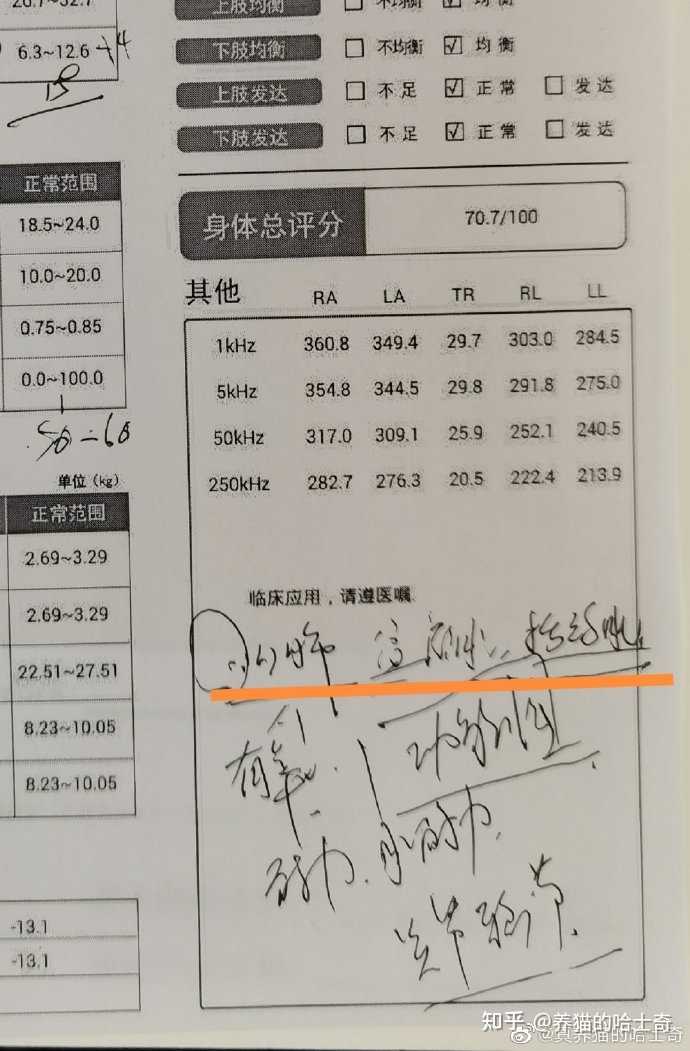 20.7~32.7
6.3~12.6
正常范围
18.5~24.0
10.0~20.0
0.75~0.85
0.0~100.0
50-60
单位（kg）
正常范围
2.69~3.29
2.69~3.29
22.51~27.51
8.23~10.05
8.23~10.05
-13.1
-13.1
上肢均衡 □ 不均衡 ☑ 均衡
下肢均衡 □ 不均衡 ☑ 均衡
上肢发达 □ 不足 ☑ 正常 □ 发达
下肢发达 □ 不足 ☑ 正常 □ 发达
身体总评分 70.7/100
其他 RA LA TR RL LL
1kHz 360.8 349.4 29.7 303.0 284.5
5kHz 354.8 344.5 29.8 291.8 275.0
50kHz 317.0 309.1 25.9 252.1 240.5
250kHz 282.7 276.3 20.5 222.4 213.9
临床应用，请遵医嘱
有氧
功能性
耐力
关节
知乎 @养猫的哈士奇
@真养猫的哈士奇